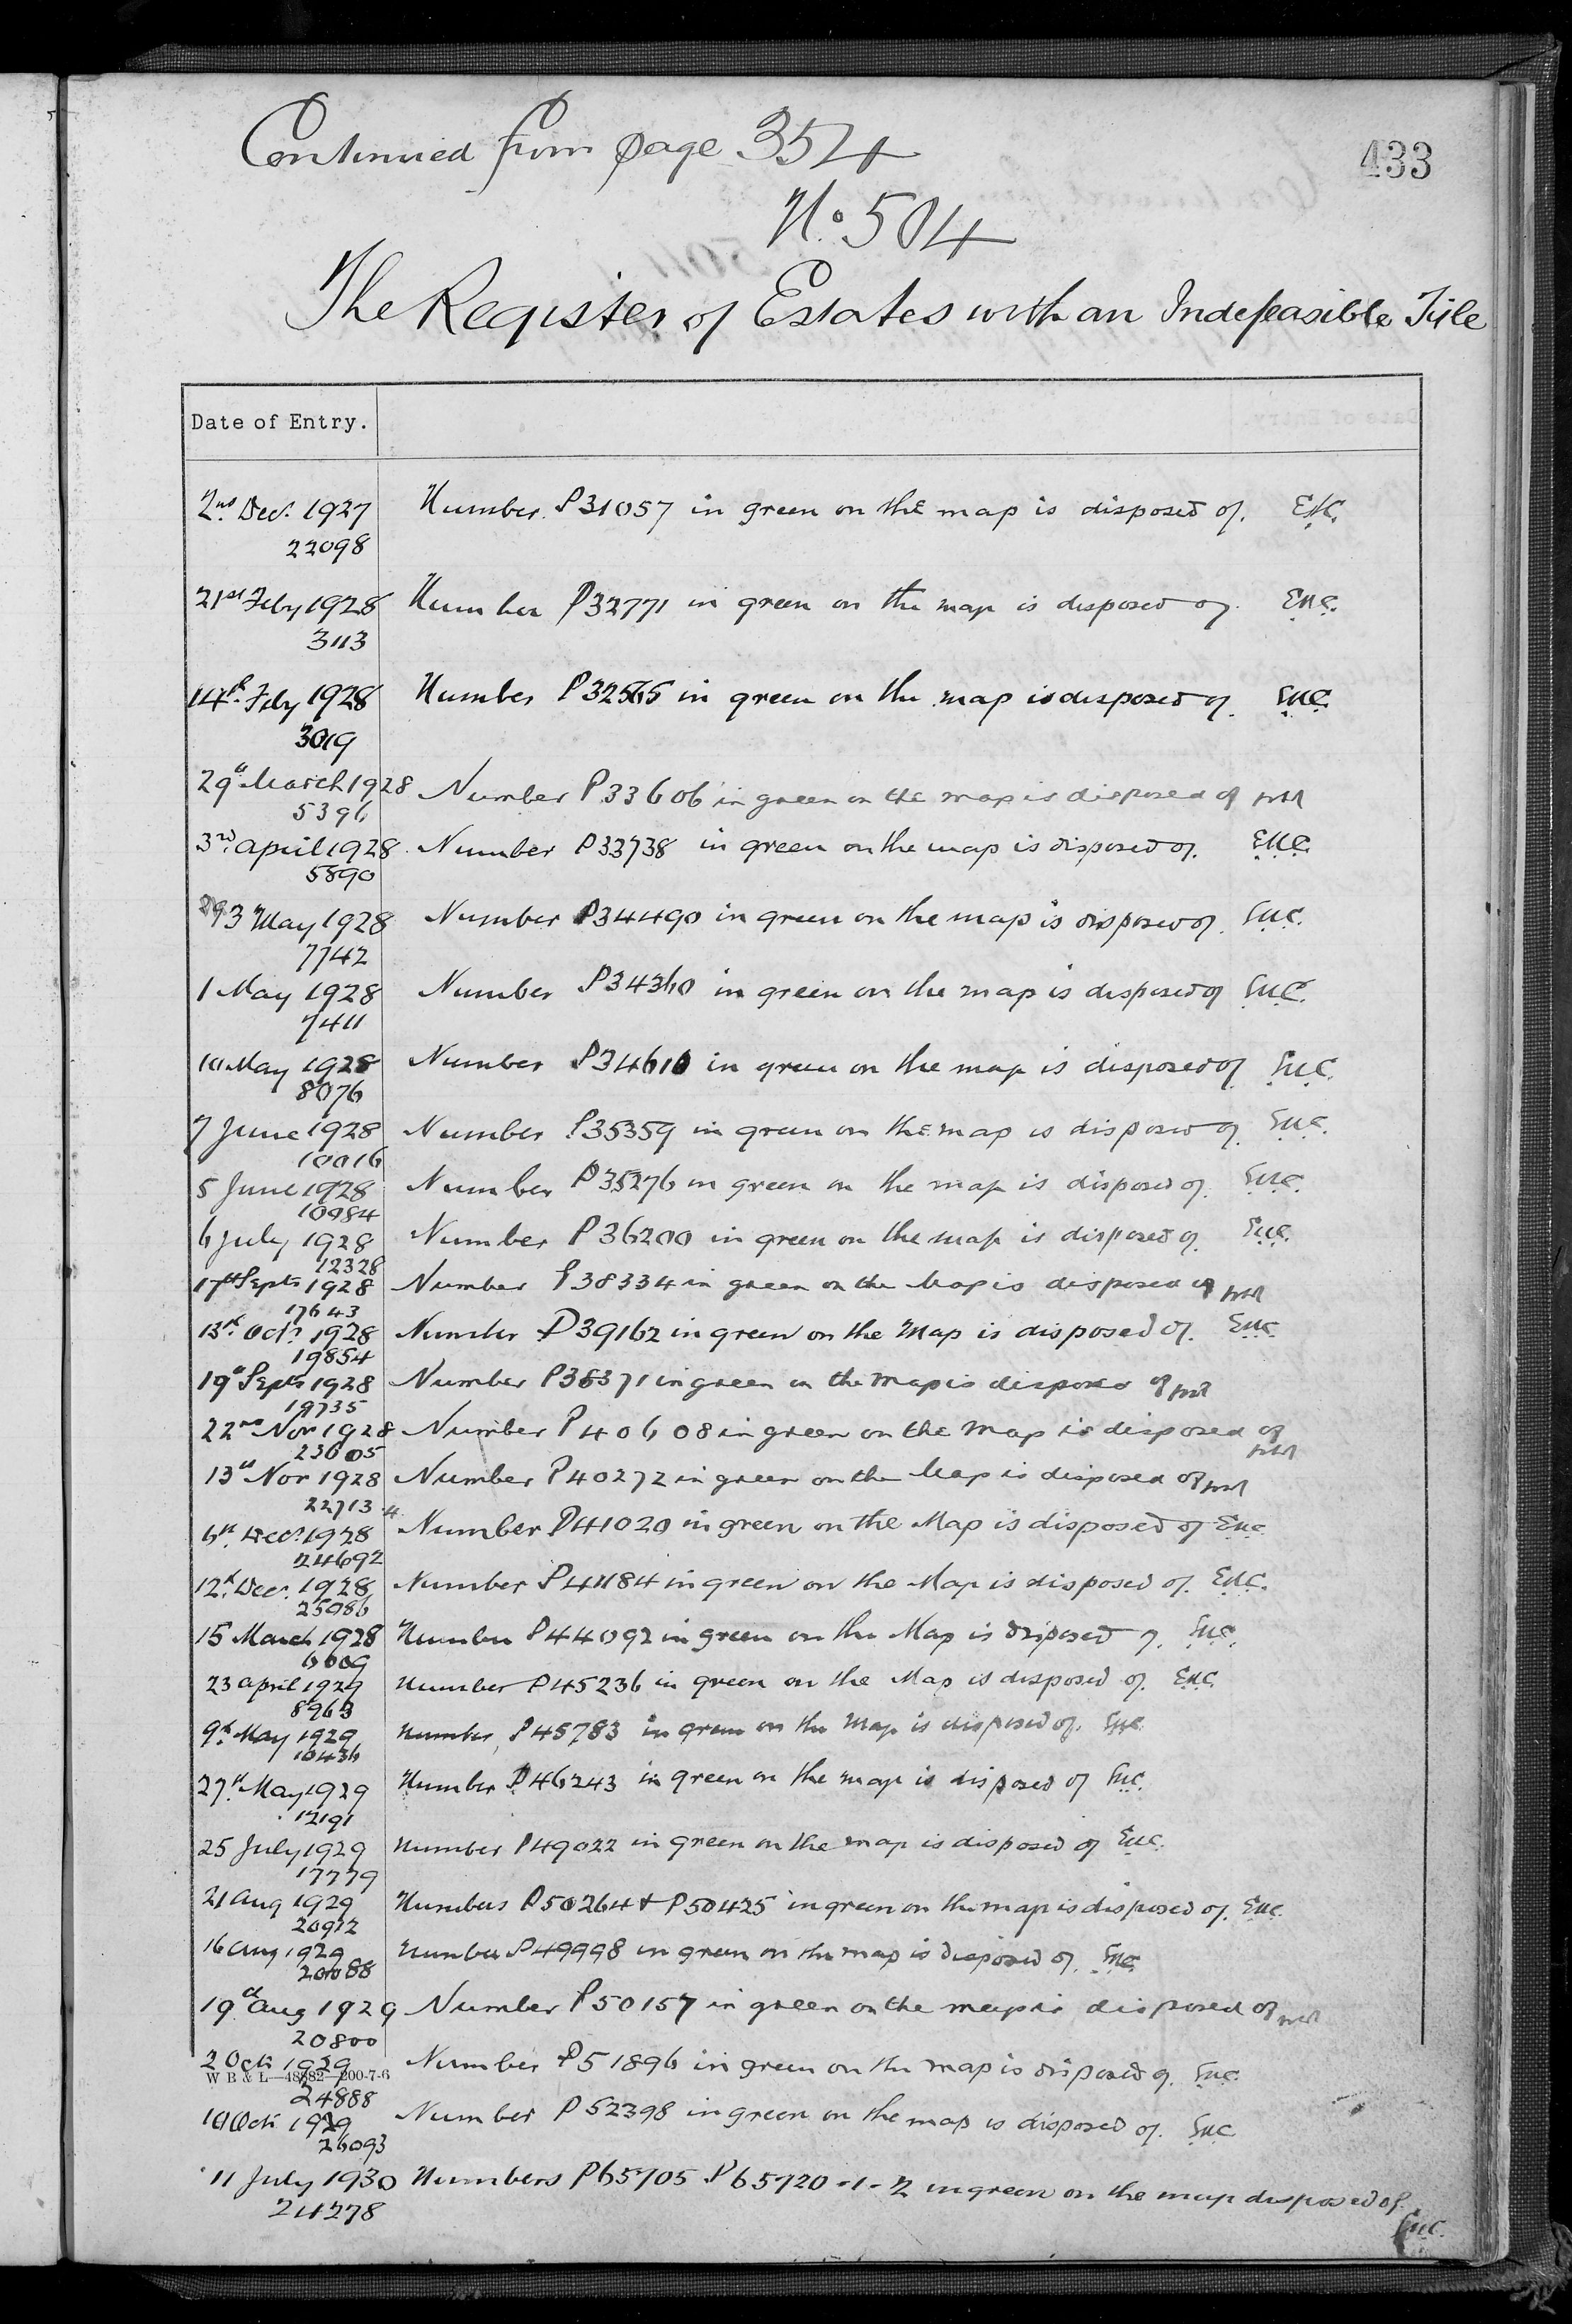 Continued from page 354
433
No. 504
The Register of Estates with an Indefeasible Title
Date of Entry.
2nd Dec. 1927 Number P31057 in green on the map is disposed of. E.H.C.
22098
21st Feby 1928 Number P32771 in green on the map is disposed of. E.H.C.
3113
14th Feby 1928 Number P32565 in green on the map is disposed of. E.H.C.
3019
29th March 1928 Number P33606 in green on the map is disposed of
5396
3rd April 1928 Number P33738 in green on the map is disposed of. E.H.C.
5890
3 May 1928 Number P34490 in green on the map is disposed of. E.H.C.
7742
1 May 1928 Number P34360 in green on the map is disposed of E.H.C.
7411
10 May 1928 Number P34610 in green on the map is disposed of E.H.C.
8076
7 June 1928 Number P35359 in green on the map is disposed of. E.H.C.
10016
5 June 1928 Number P35276 in green on the map is disposed of. E.H.C.
10984
6 July 1928 Number P36200 in green on the map is disposed of. E.H.C.
12328
17th Septr 1928 Number P38334 in green on the Map is disposed of
17643
13th Octr. 1928 Number P39162 in green on the Map is disposed of. E.H.C.
19854
19th Septr 1928 Number in green on the Map is disposed of
19735
22nd Nov 1928 Number P40608 in green on the Map is disposed of
23605
13th Nov 1928 Number P40272 in green on the Map is disposed of
22713.4
6th Decr. 1928 Number P41020 in green on the Map is disposed of E.H.C.
24692
12th Decr. 1928 Number P41184 in green on the Map is disposed of. E.H.C.
25086
15 March 1928 Number P44092 in green on the Map is disposed of. E.H.C.
6609
23 April 1929 Number P45236 in green on the Map is disposed of. E.H.C.
8963
9th May 1929 Number P45783 in green on the Map is disposed of. E.H.C.
10436
27th May 1929 Number P46243 in green on the map is disposed of E.H.C.
12191
25 July 1929 Number P49022 in green on the map is disposed of E.H.C.
17779
21 Aug 1929 Numbers P50264 & P50425 in green on the map is disposed of. E.H.C.
20912
16 Aug 1929 Number P49998 in green on the map is disposed of. E.H.C.
20088
19th Aug 1929 Number P50157 in green on the map is disposed of
20800
2 Oct 1929 Number P51896 in green on the map is disposed of. E.H.C.
W B & L—48882—200-7-6
24888
10 Oct 1929 Number P52398 in green on the map is disposed of. E.H.C.
26093
11 July 1930 Numbers P65705 P65720-1-2 in green on the map disposed of.
E.H.C.